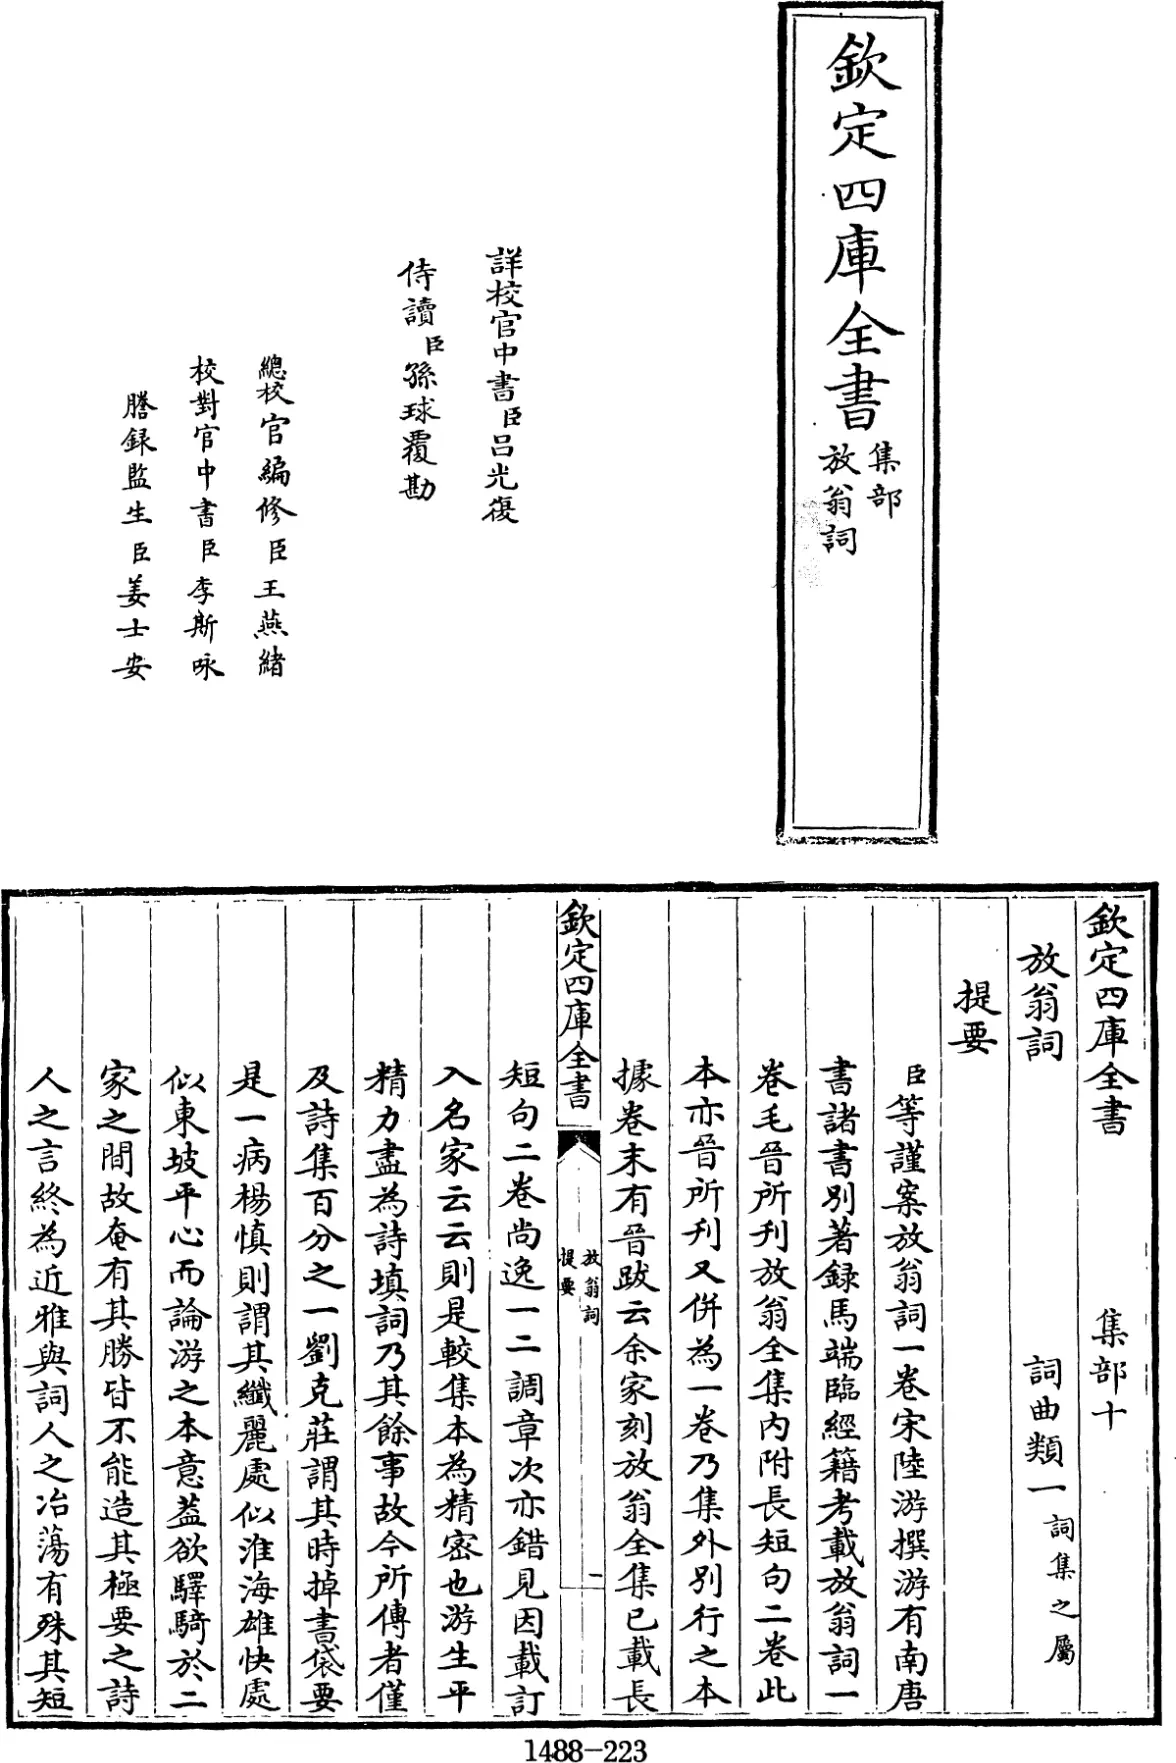 欽定四庫全書
集部
放翁詞
詳校官中書臣呂光復
侍讀臣孫球覆勘
總校官編修臣王燕緒
校對官中書臣李斯咏
謄録監生臣姜士安
欽定四庫全書 集部十
放翁詞 詞曲類一 詞集之屬
提要
臣等謹案放翁詞一卷宋陸游撰游有南唐
書諸書别著録馬端臨經籍考載放翁詞一
卷毛晉所刋放翁全集内附長短句二卷此
本亦晉所刋又併為一卷乃集外别行之本
據卷末有晉跋云余家刻放翁全集已載長
欽定四庫全書
放翁詞
提要
一
短句二卷尚逸一二調章次亦錯見因載訂
入名家云云則是較集本為精宻也游生平
精力盡為詩填詞乃其餘事故今所傳者僅
及詩集百分之一劉克莊謂其時掉書袋要
是一病楊慎則謂其纖麗處似淮海雄快處
似東坡平心而論游之本意葢欲驛騎於二
家之間故奄有其勝皆不能造其極要之詩
人之言終為近雅與詞人之冶蕩有殊其短
1488-223